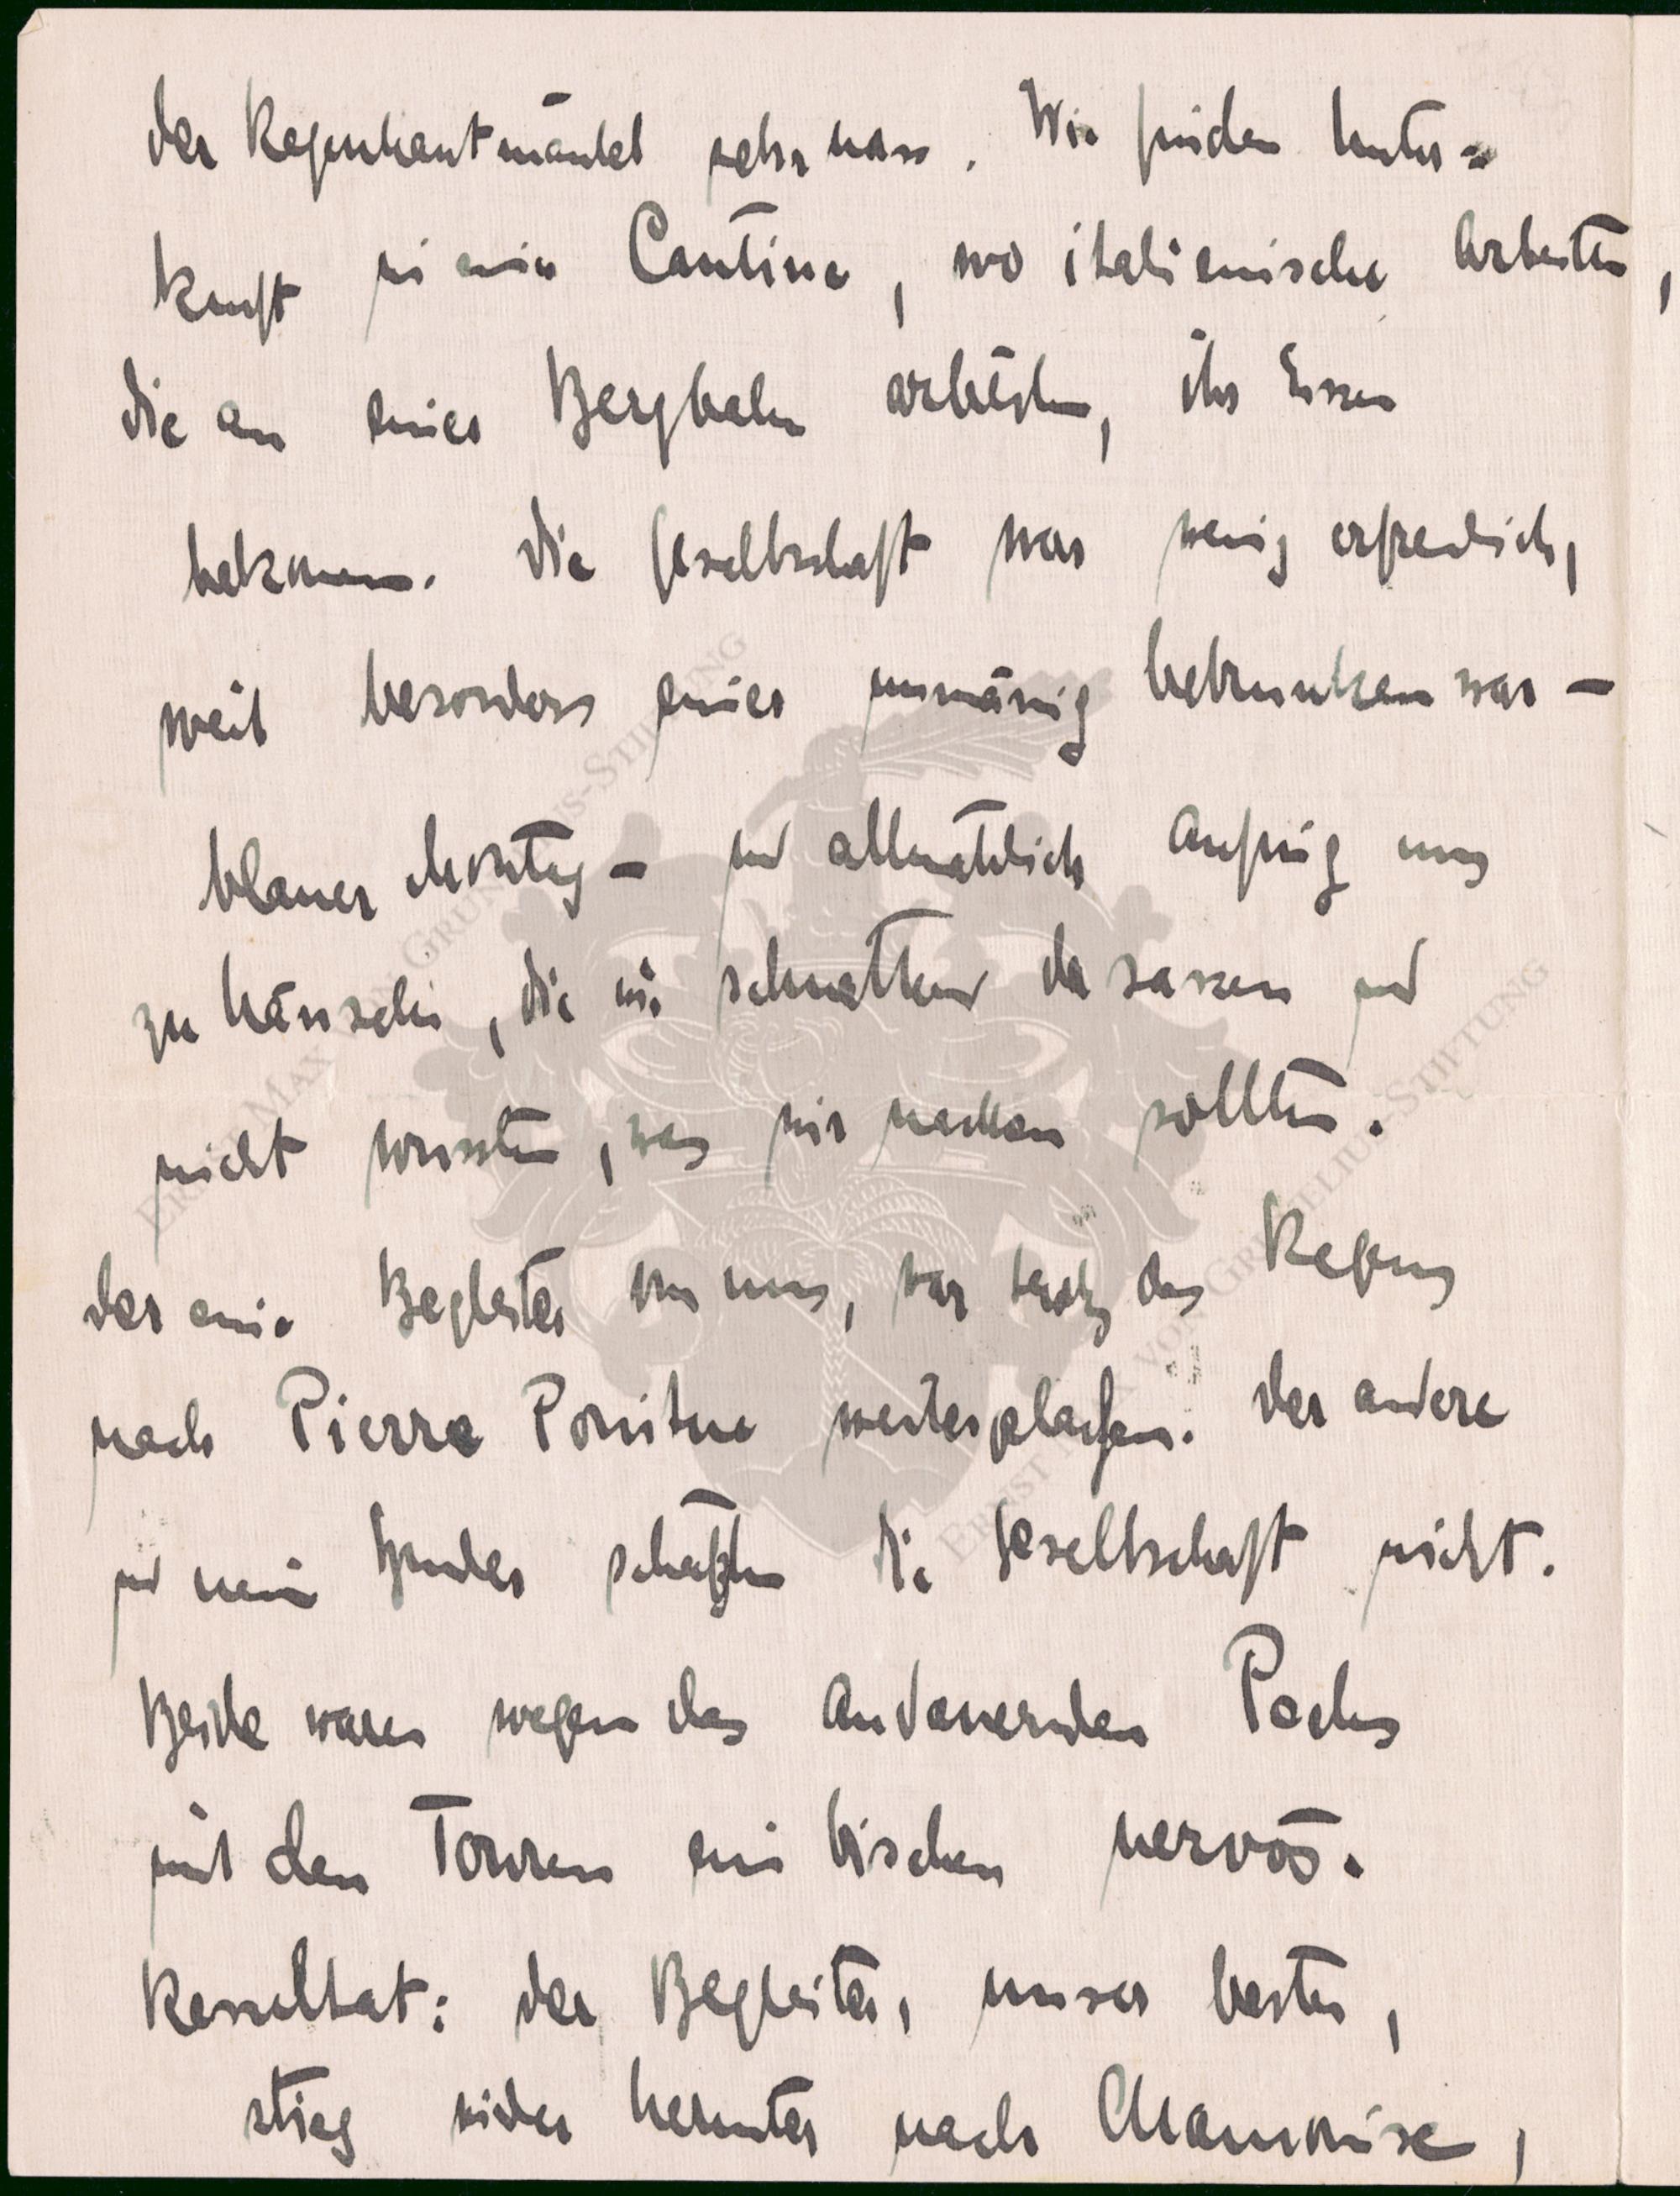 der Regenhautmäntel sehr nass. Wir finden Unter=
kunft in einer Cantine, wo italienische Arbeiter,
die an einer Bergbahn arbeiten, ihr Essen
bekommen. Die Gesellschaft war wenig erfreulich,
weil besonders einer unmässig betrunken war –
blauer Montag – und allmählich anfing uns
zu hänseln, die wir schnatternd da sassen und
nicht wussten, was wir machen sollten.
Der eine Begleiter von uns, war trotz des Regens
nach Pierre Pointue weitergelaufen. Der andere
und mein Bruder schätzten die Gesellschaft nicht.
Beide waren wegen des andauernden Pechs
mit den Touren ein bischen nervös.
Resultat: der Begleiter, unser bester,
stieg wieder herunter nach Chamonix,
ERNST MAX VON GRUNELIUS-STIFTUNG
ERNST MAX VON GRUNELIUS-STIFTUNG